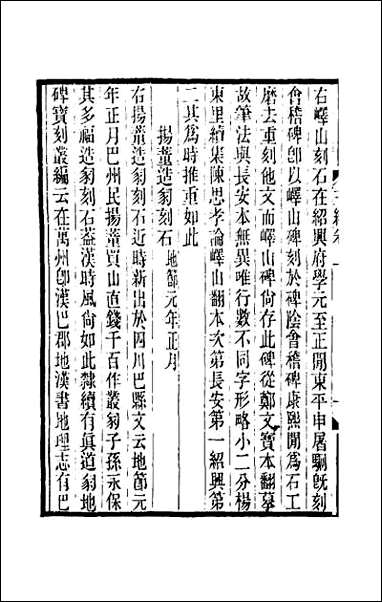 右嶧山刻石在紹興府學元至正閒東平申屠駉旣刻
會稽碑卽以嶧山碑刻於碑陰會稽碑康熙閒爲石工
磨去重刻他文而嶧山碑尙存此碑從鄭文寶本翻摹
故筆法與長安本無異唯行數不同字形略小二分楊
東里續集陳思孝論嶧山翻本次第長安第一紹興第
二其爲時推重如此
揚蕫造冢刻石 地節元年正月
右揚蕫造冢刻石近時新出於四川巴縣文云地節元
年正月巴州民揚蕫買山直錢千百作冢子孫永保
其多福造冢刻石葢漢時風尙如此隸續有眞道冢地
碑寶刻叢編云在萬州卽漢巴郡地漢書地理志有巴